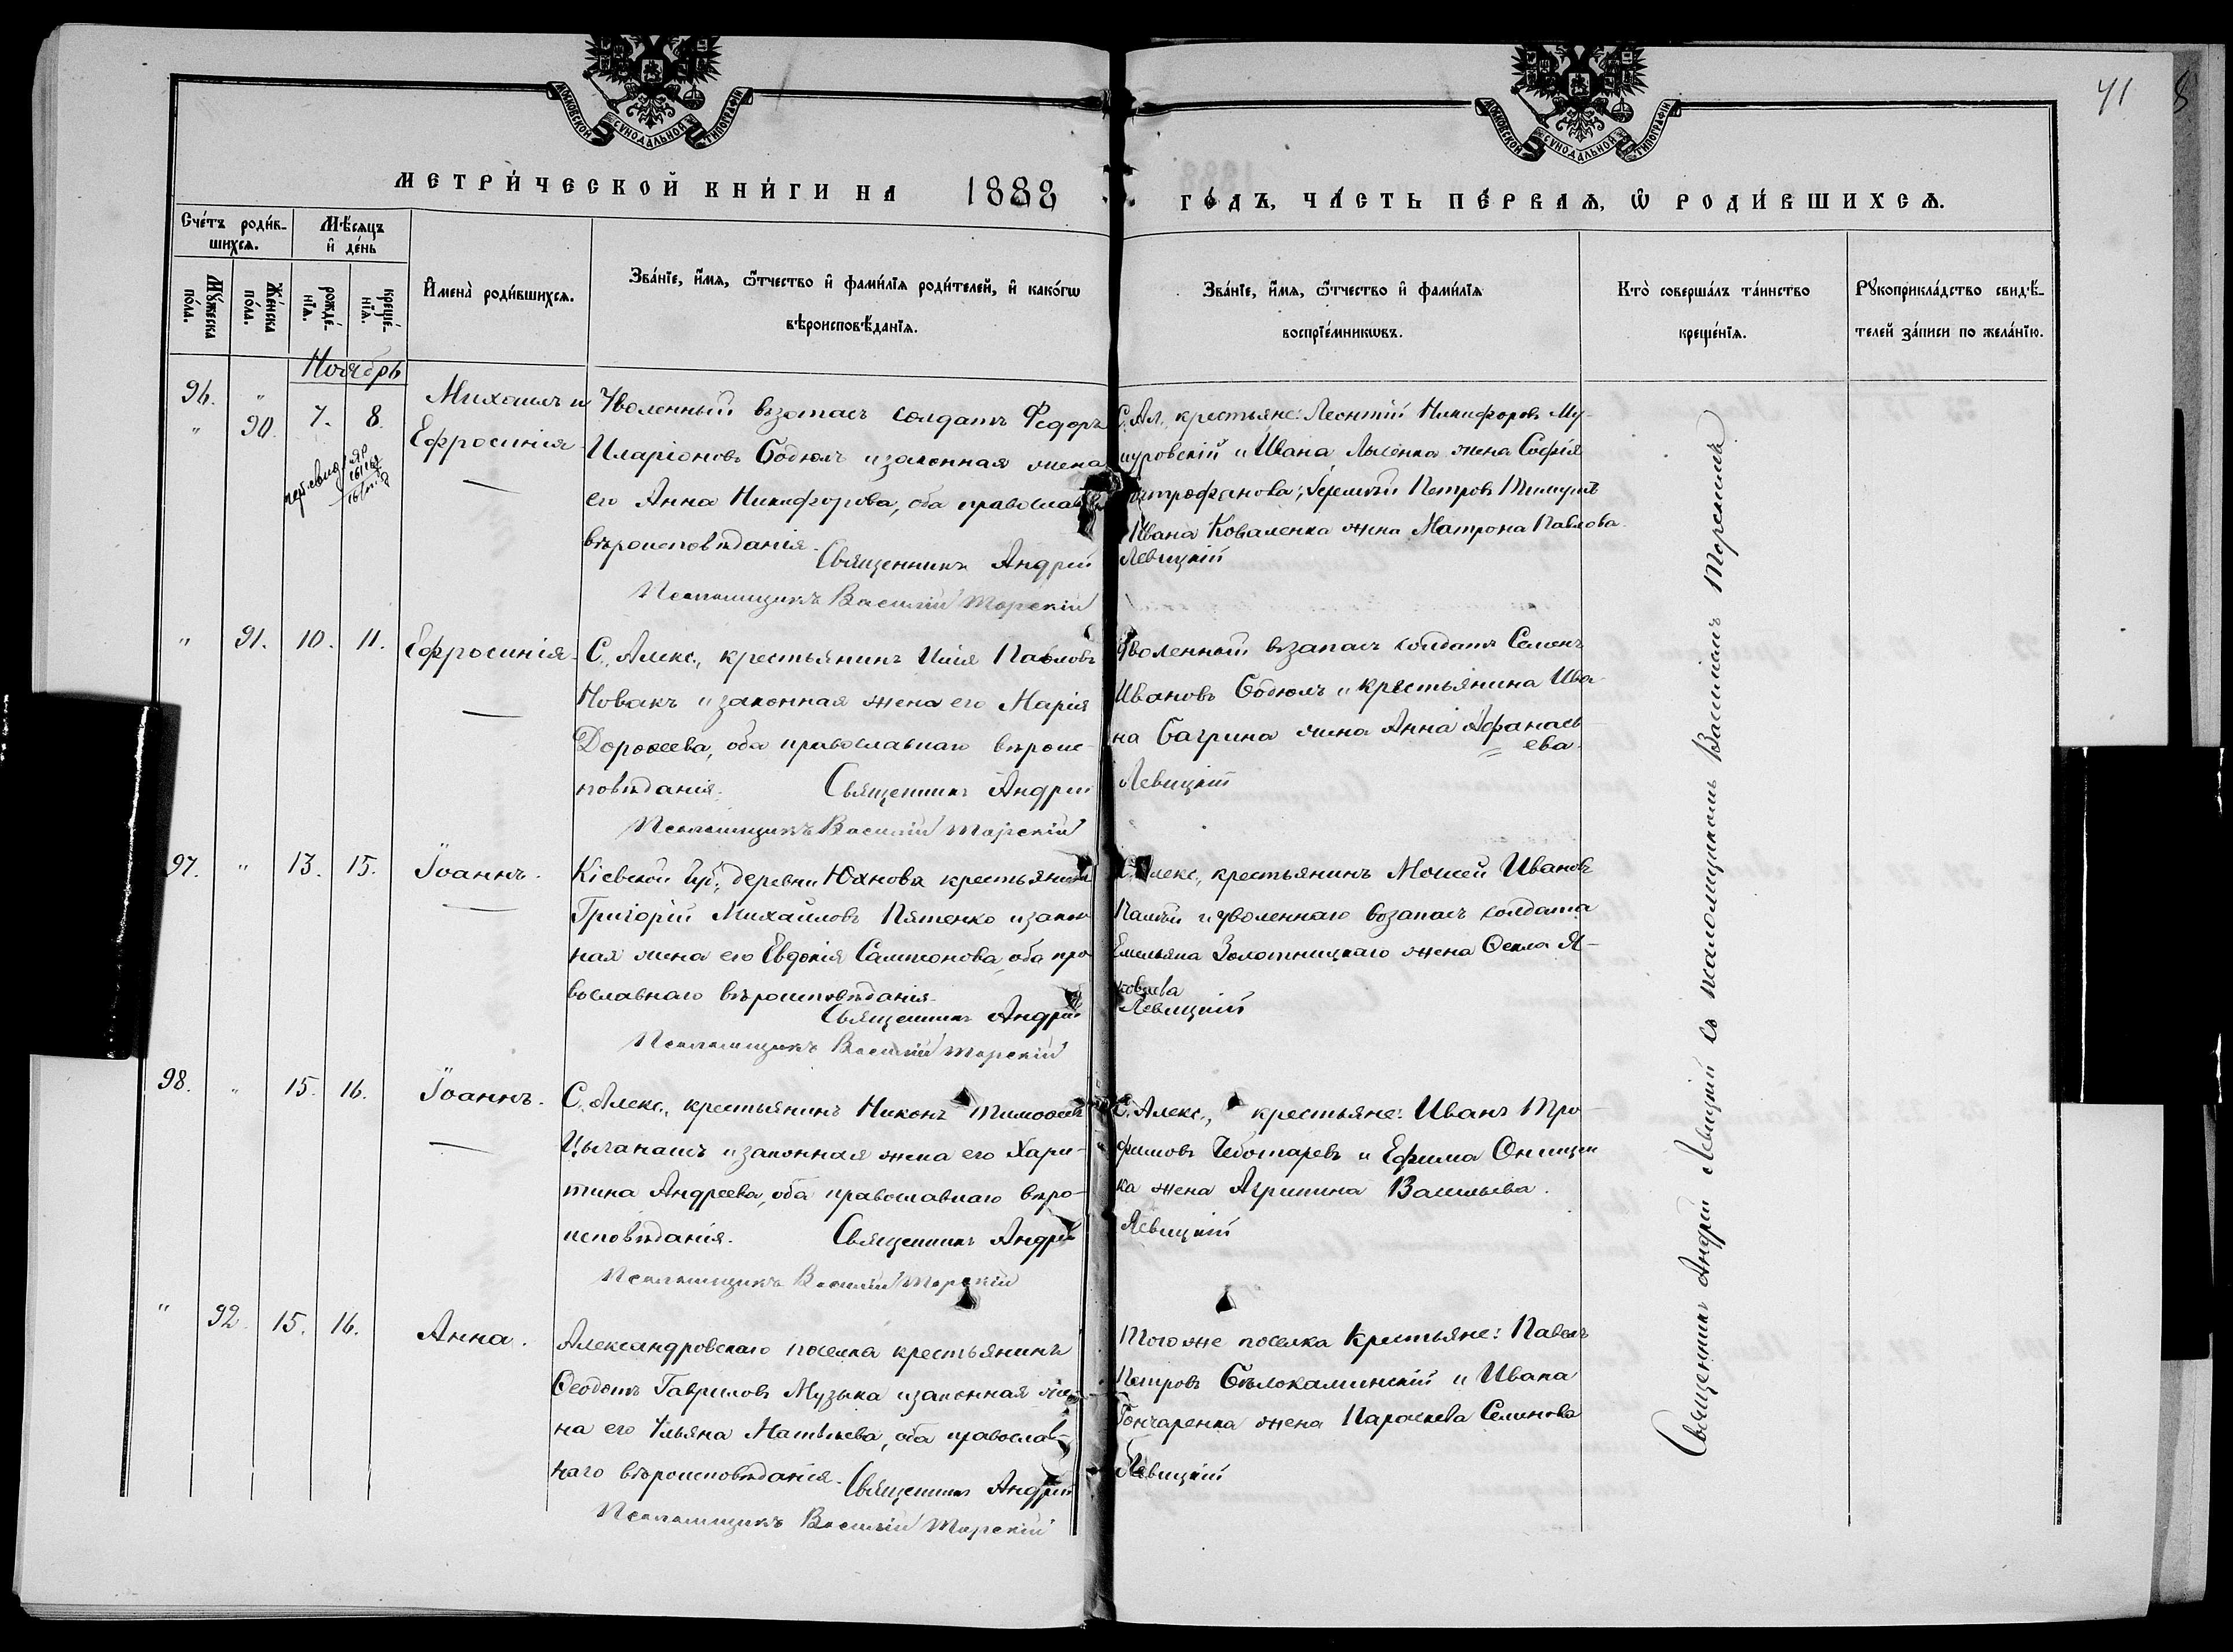 МОСКОВСКОЙ СУНОДАЛЬНОЙ ТИПОГРАФІИ
МОСКОВСКОЙ СУНОДАЛЬНОЙ ТИПОГРАФІИ
41
МЕТРИ́ЧЕСКОЙ КНИ́ГИ НА 1888 ГО́ДЪ, ЧА́СТЬ ПЕ́РВАѦ, Ѡ РОДИ́ВШИХСѦ.
Сче́тъ роди́в-
шихсѧ.
Мѣ́сяцъ
и де́нь
Му́жеска по́ла.
Же́нска по́ла.
рожде́-нїѧ.
креще́-нїѧ.
Имена̀ роди́вшихсѧ.
Зва́нїе, и́мѧ, ѻ҆́тчество и фами́лїѧ роди́телей, и како́гѡ
вѣроисповѣ́данїѧ.
Зва́нїе, и́мѧ, ѻ҆́тчество и фами́лїѧ
воспрїе́мникѡвъ.
Кто̀ соверша́лъ та́инство
креще́нїѧ.
Рꙋкоприкла́дство свидѣ́-
телей за́писи по жела́нїю.
Ноябрь
96. " 7. 8. Михаилъ и
" 90. Ефросинія
Уволенный взапасъ солдатъ Федоръ
Иларіоновъ Бодюлъ и законная жена
его Анна Никифорова, оба православ
вѣроисповѣданія.
Священникъ Андрій Левицкій
Псаломщикъ Василій Торскій
С. Ал., крестьяне: Леонтій Никифоровъ Му-
шуровскій и Ивана Лысенка жена Софія
Петровъ
Ивана Коваленка жена Матрона Павлова
" 91. 10. 11. Ефросинія
С. Алекс., крестьянинъ Илія Павловъ
Новакъ и законная жена его Марія
Дороѳеева, оба православнаго вѣроис-
повѣданія. Священникъ Андрій Левицкій
Псаломщикъ Василій Торскій
Уволенный взапасъ солдатъ Семенъ
Ивановъ Бодюлъ и крестьянина Ива-
на Багрина жена Анна Афанась
ева.
97. " 13. 15. Іоаннъ.
Кіевской губ., деревни Юхнова крестьянинъ
Григорій Михайловъ Пятенко и закон
ная жена его Евдокія Сампсонова, оба пра
вославнаго вѣроисповѣданія.
Священникъ Андрій Левицкій
Псаломщикъ Василій Торскій
С. Алекс., крестьянинъ Моисей Ивановъ
Палій и уволеннаго возапасъ солдата
Емельяна Золотницкаго жена Ѳекла Я-
ковлева
98. " 15. 16. Іоаннъ.
С. Алекс., крестьянинъ Никонъ Тимоѳеевъ
Цыганашъ и законная жена его Хари-
тина Андреева, оба православнаго вѣро-
исповѣданія. Священникъ Андрій Левицкій
Псаломщикъ Василій Торскій
С. Алекс., крестьяне: Иванъ Тро-
фимовъ Чеботаревъ и Ефима Онищен
ка жена Агрипина Васильева.
" 92. 15. 16. Анна.
Александровскаго поселка крестьянинъ
Ѳеодотъ Гавриловъ Музыка и законная же-
на его Ульяна Матвѣева, оба православ-
наго вѣроисповѣданія. Священникъ Андрій Левицкій
Псаломщикъ Василій Торскій
Того же поселка крестьяне: Павелъ
Петровъ Бѣлокаминскій и Ивана
Гончаренка жена Параскева Семенова
Священникъ Андрій Левицкій съ псаломщикомъ Василіемъ Торскимъ